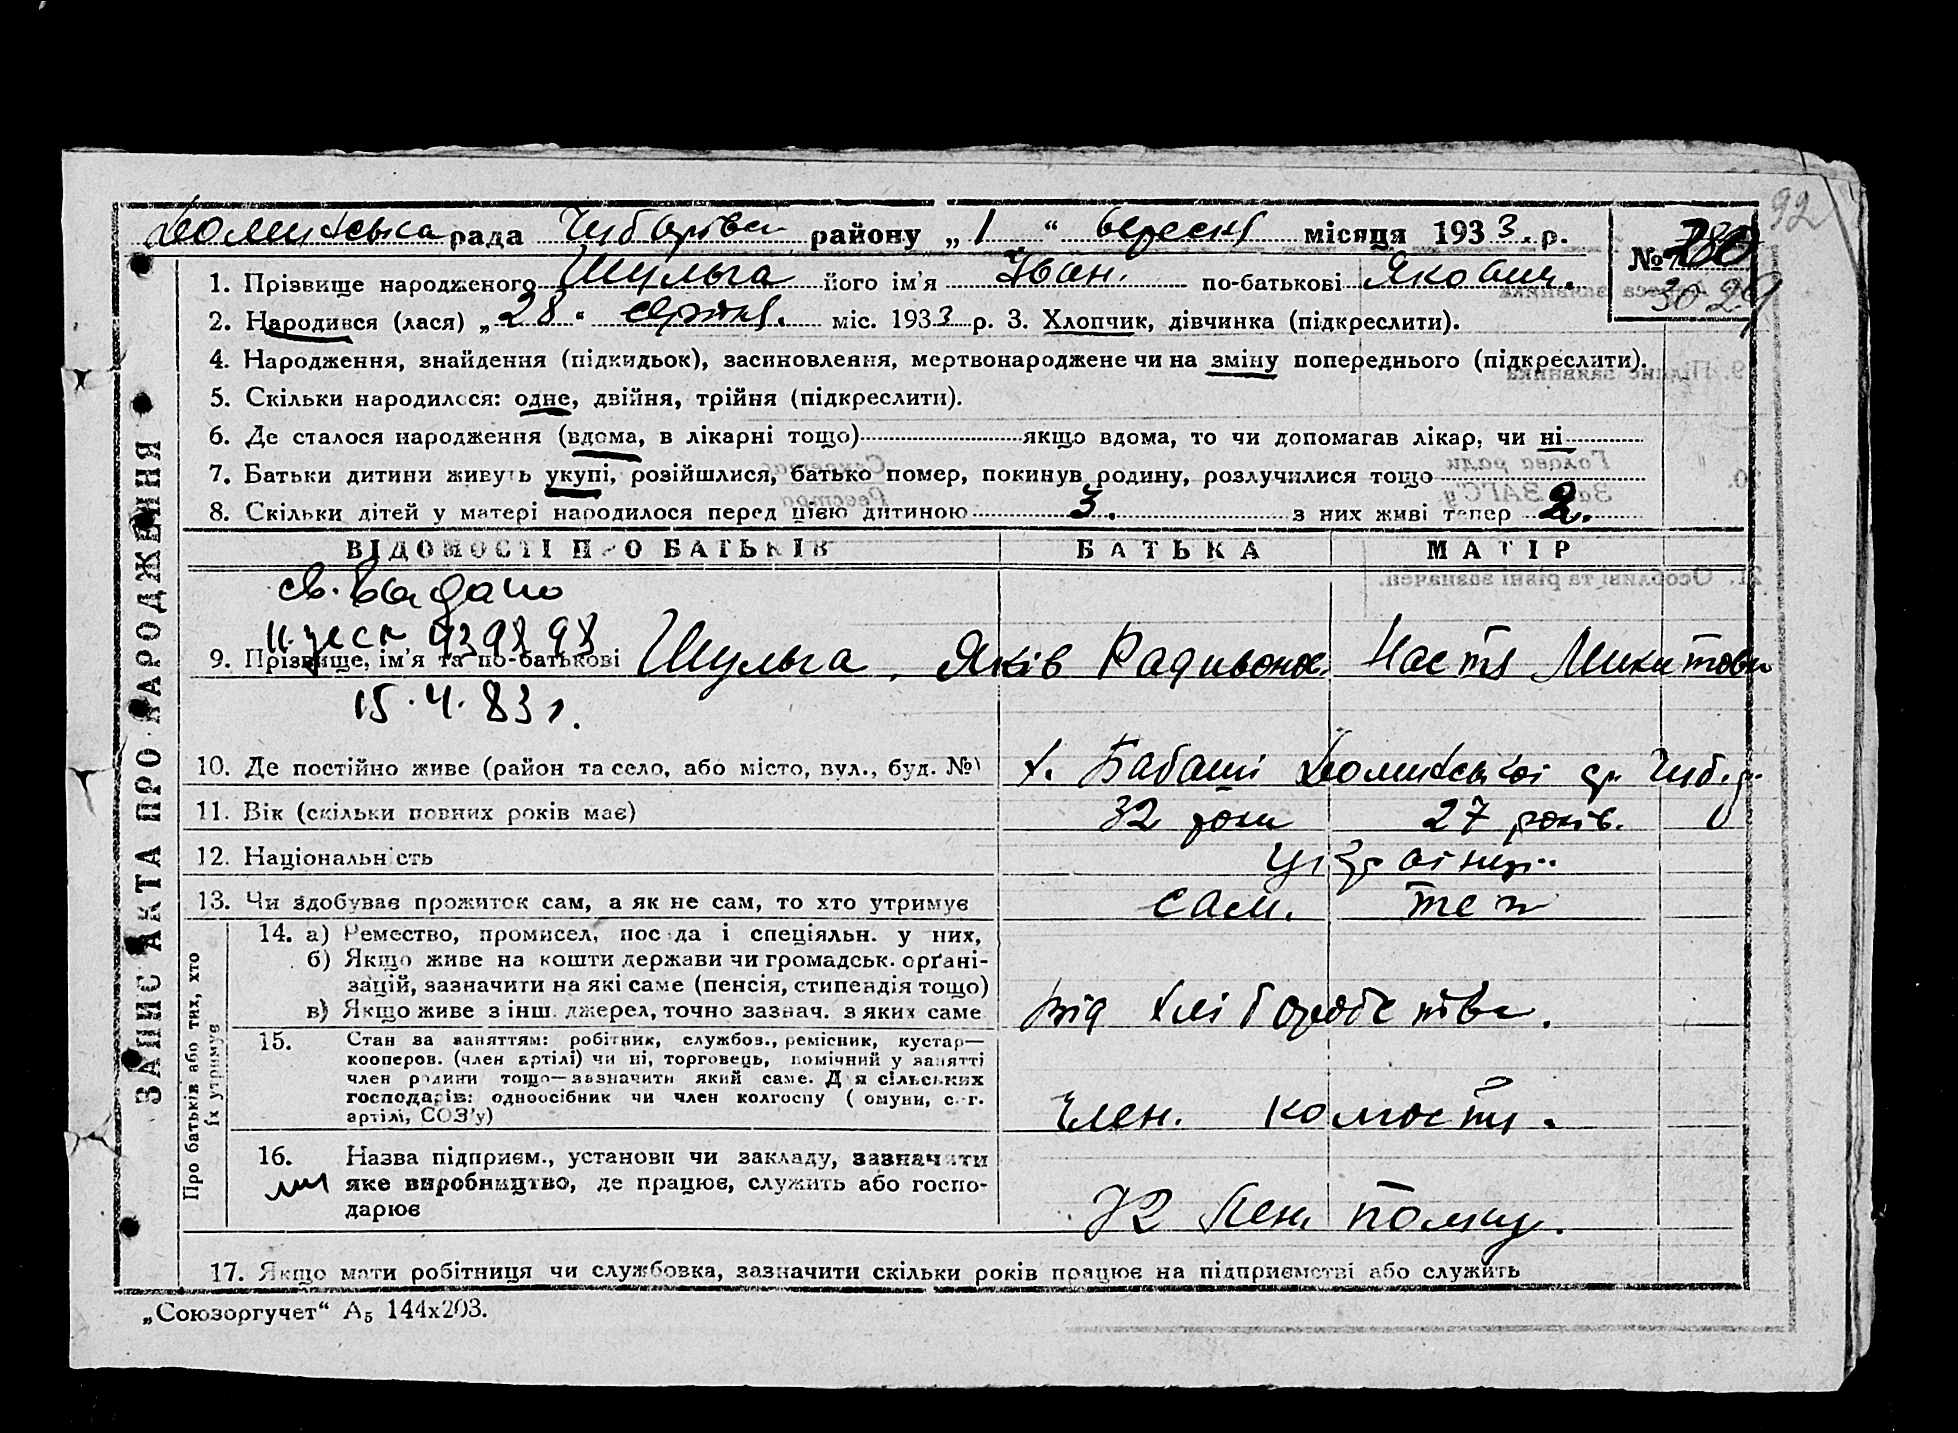 92
рада району „1“ вересня місяця 1933. р.
№ 780
30 29
1. Прізвище народженого Шульга його ім'я Іван. по-батькові Якович.
2. Народився (лася) „28“ серпня. міс. 1933 р. 3. Хлопчик, дівчинка (підкреслити).
4. Народження, знайдення (підкидьок), засиновлення, мертвонароджене чи на зміну попереднього (підкреслити).
5. Скільки народилося: одне, двійня, трійня (підкреслити).
6. Де сталося народження (вдома, в лікарні тощо) якщо вдома, то чи допомагав лікар, чи ні
7. Батьки дитини живуть укупі, розійшлися, батько помер, покинув родину, розлучилися тощо
8. Скільки дітей у матері народилося перед цією дитиною 3. з них живі тепер 2.
ВІДОМОСТІ ПРО БАТЬКІВ БАТЬКА МАТІР
св. выдано
939898
9. Прізвище, ім'я та по-батькові Шульга, Яків Радивонов. Настя Микитовн
15.4.83 г.
10. Де постійно живе (район та село, або місто, вул., буд. №) х. Бабаші
11. Вік (скільки повних років має) 32 роки 27 років.
12. Національність українці
13. Чи здобуває прожиток сам, а як не сам, то хто утримує сам. теж
ЗАПИС АКТА ПРО НАРОДЖЕННЯ
Про батьків або тих, хто їх утримує
14. а) Ремество, промисел, посада і спеціяльн. у них,
б) Якщо живе на кошти держави чи громадськ. орґані-
зацій, зазначити на які саме (пенсія, стипендія тощо)
в) Якщо живе з інш. джерел, точно зазнач. з яких саме від хліборобства.
15. Стан за заняттям: робітник, службов., ремісник, кустар—
кооперов. (член артілі) чи ні, торговець, помічний у занятті
член родини тощо—зазначити який саме. Для сільських
господарів: одноосібник чи член колгоспу (комуни, с.-г.
артілі, СОЗ'у) член. колгоспу.
16. Назва підприєм., установи чи закладу, зазначити
яке виробництво, де працює, служить або госпо-
дарює
17. Якщо мати робітниця чи службовка, зазначити скільки років працює на підприємстві або служить
„Союзоргучет“ А₅ 144х203.